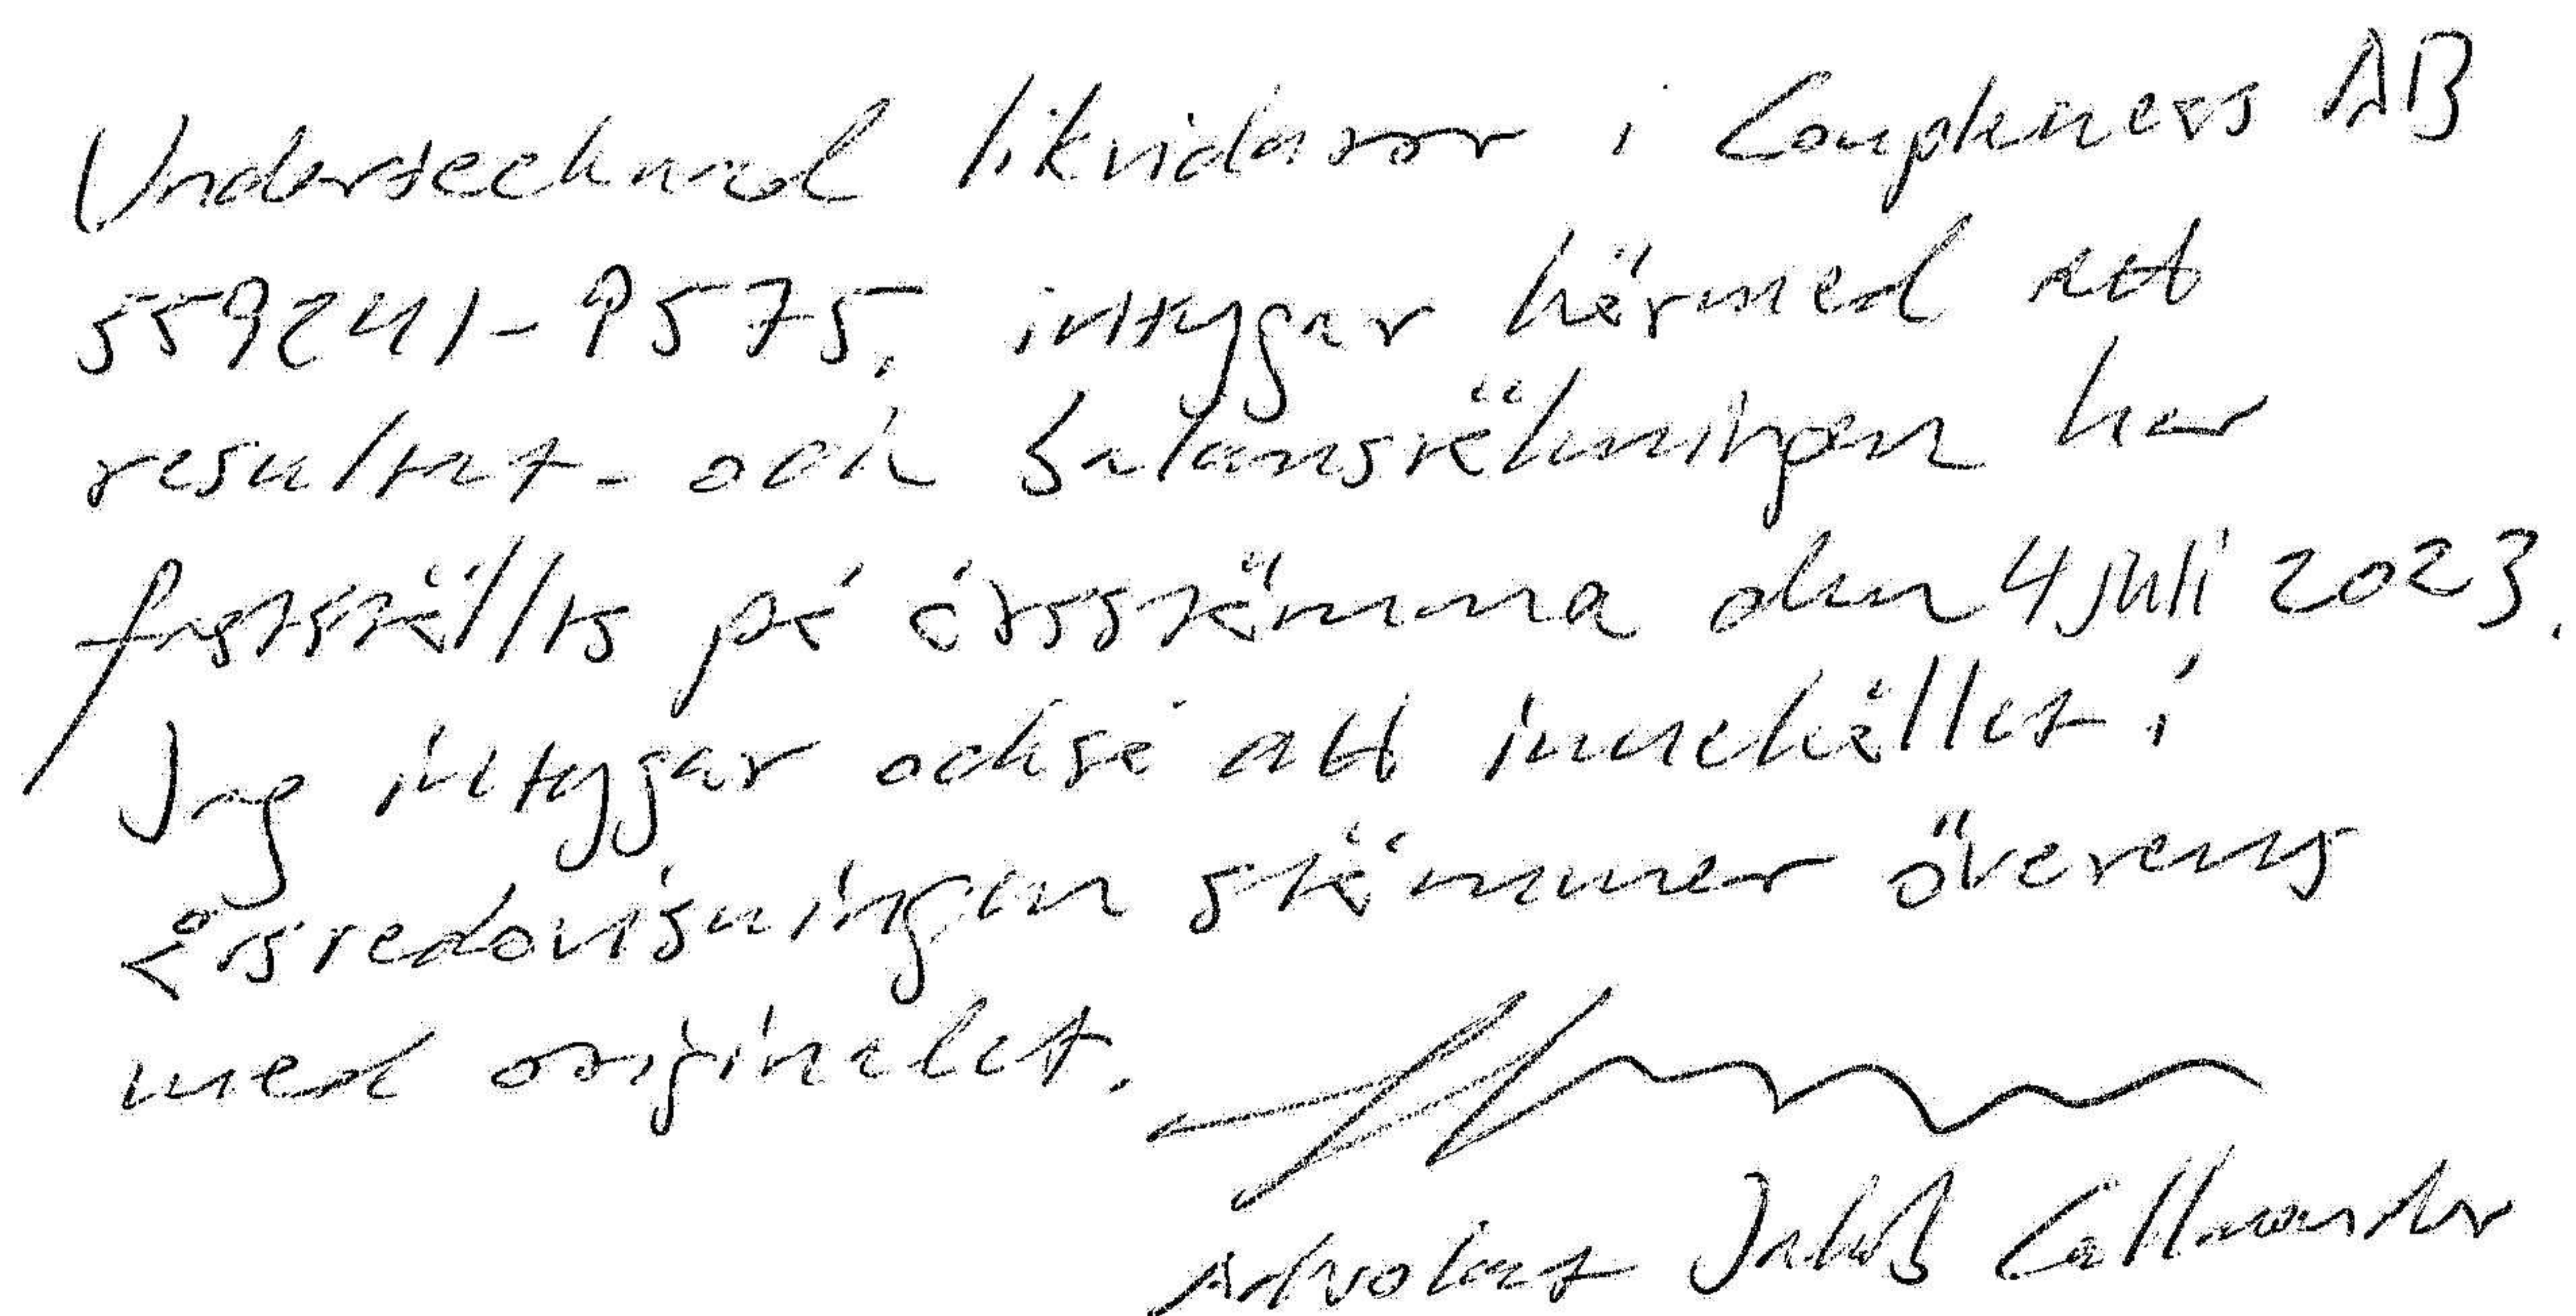 Undertecknad likvidator i Compleness AB
559241-9575, intygar härmed att
resultat- och balansräkningen har
fastställts på årsstämma den 4 juli 2023.
Jag intygar också att innehållet i
årsredovisningen stämmer överens
med originalet.
Advokat Jakob Callmander